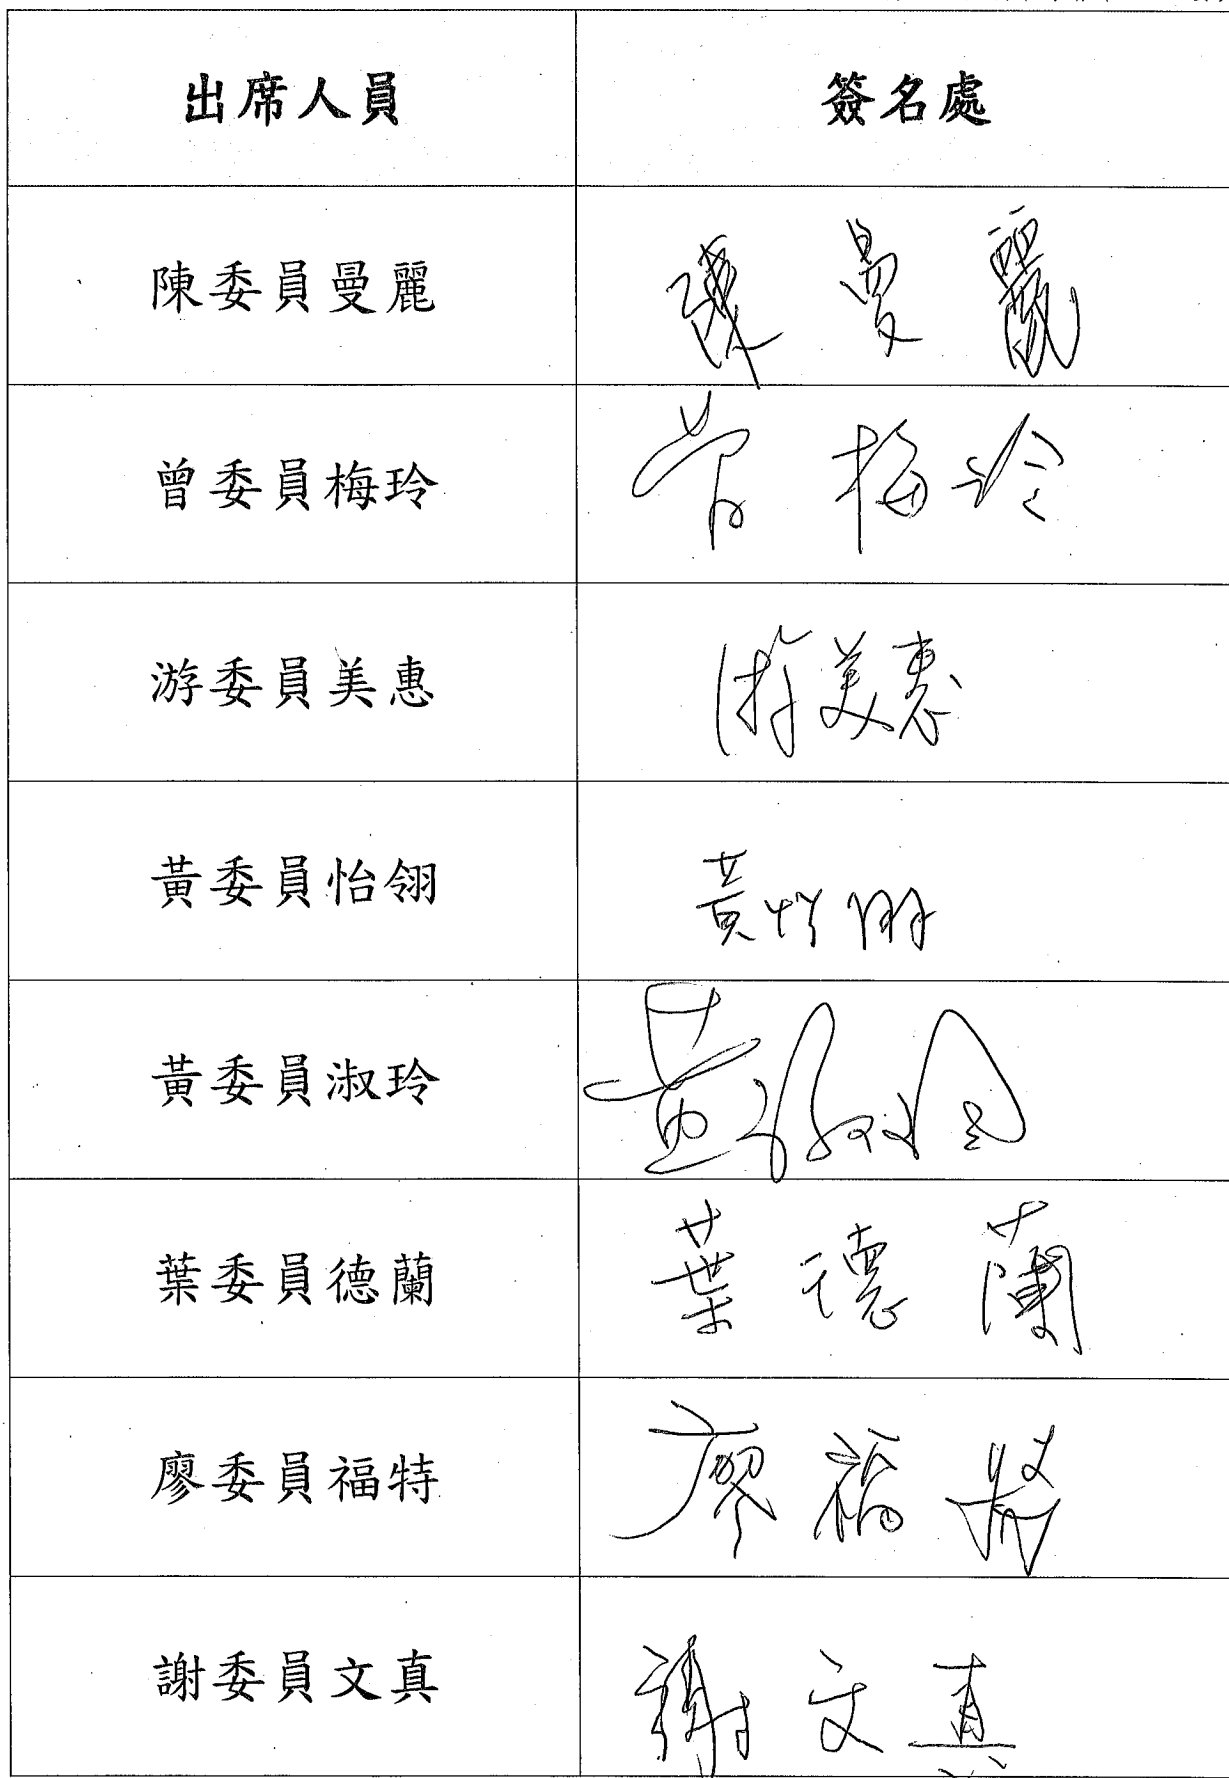 出席人員 簽名處
陳委員曼麗 陳曼麗
曾委員梅玲 曾梅玲
游委員美惠 游美惠
黃委員怡翎 黃怡翎
黃委員淑玲 黃淑玲
葉委員德蘭 葉德蘭
廖委員福特 廖福特
謝委員文真 謝文真